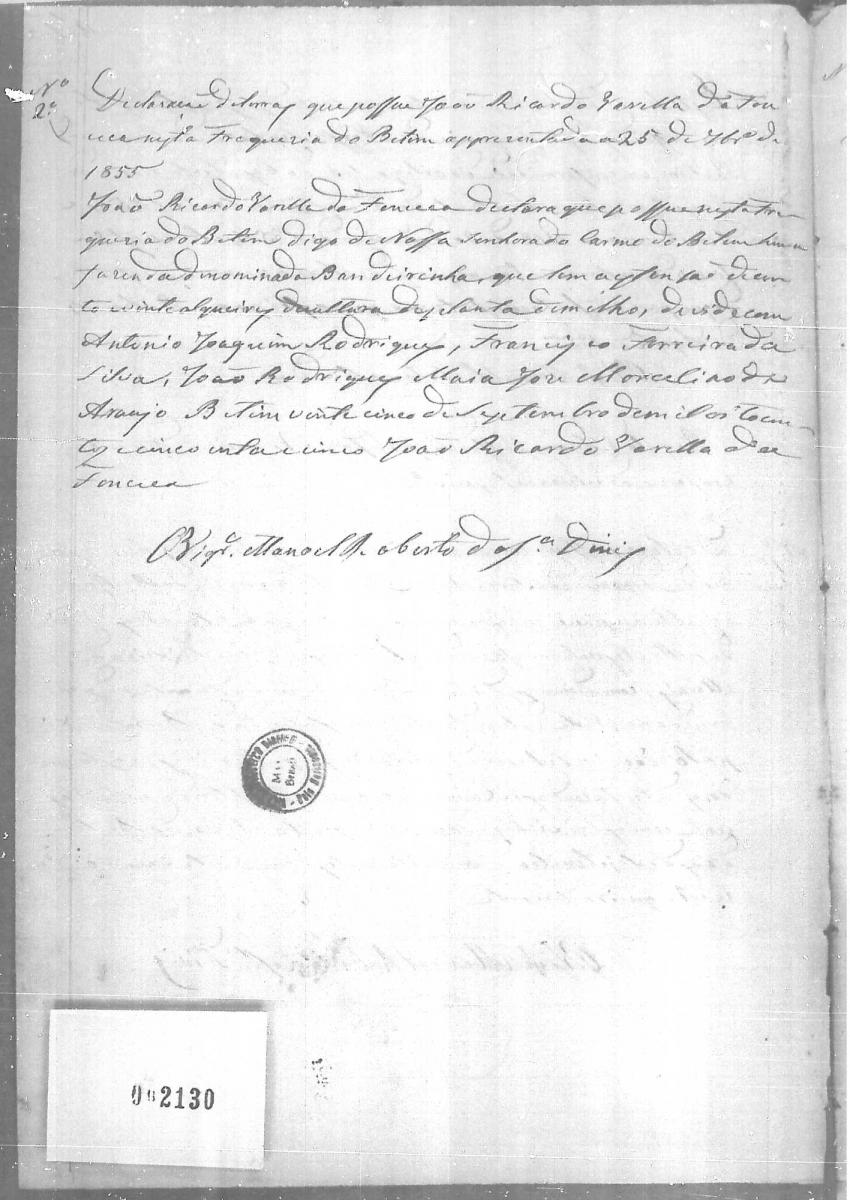 Nº
2º
Declaração de terras que possue João Ricardo Varella da Fon
ceca nesta Fregueria do Betim appresentada a 25 de 7brº de
1855
João Ricardo Varella da Fonceca declara que possue nesta Fre
gueria do Betim digo de Nossa Senhora do Carmo do Betim huma
fazenda denominada Bandeirinha, que tem a extensão de cen
to e vinte alqueires de cultura de planta de milho, devide com
Antonio Joaquim Rodrigues, Francisco Ferreira da
Silva, João Rodrigues Maia Jose Marcelino de
Araujo Betim vinte cinco de Septembro de mil oito cen
tos e cincoenta e cinco João Ricardo Varella da
Fonceca
O Vigrº. Manoel Roberto da Sª Diniz
002130